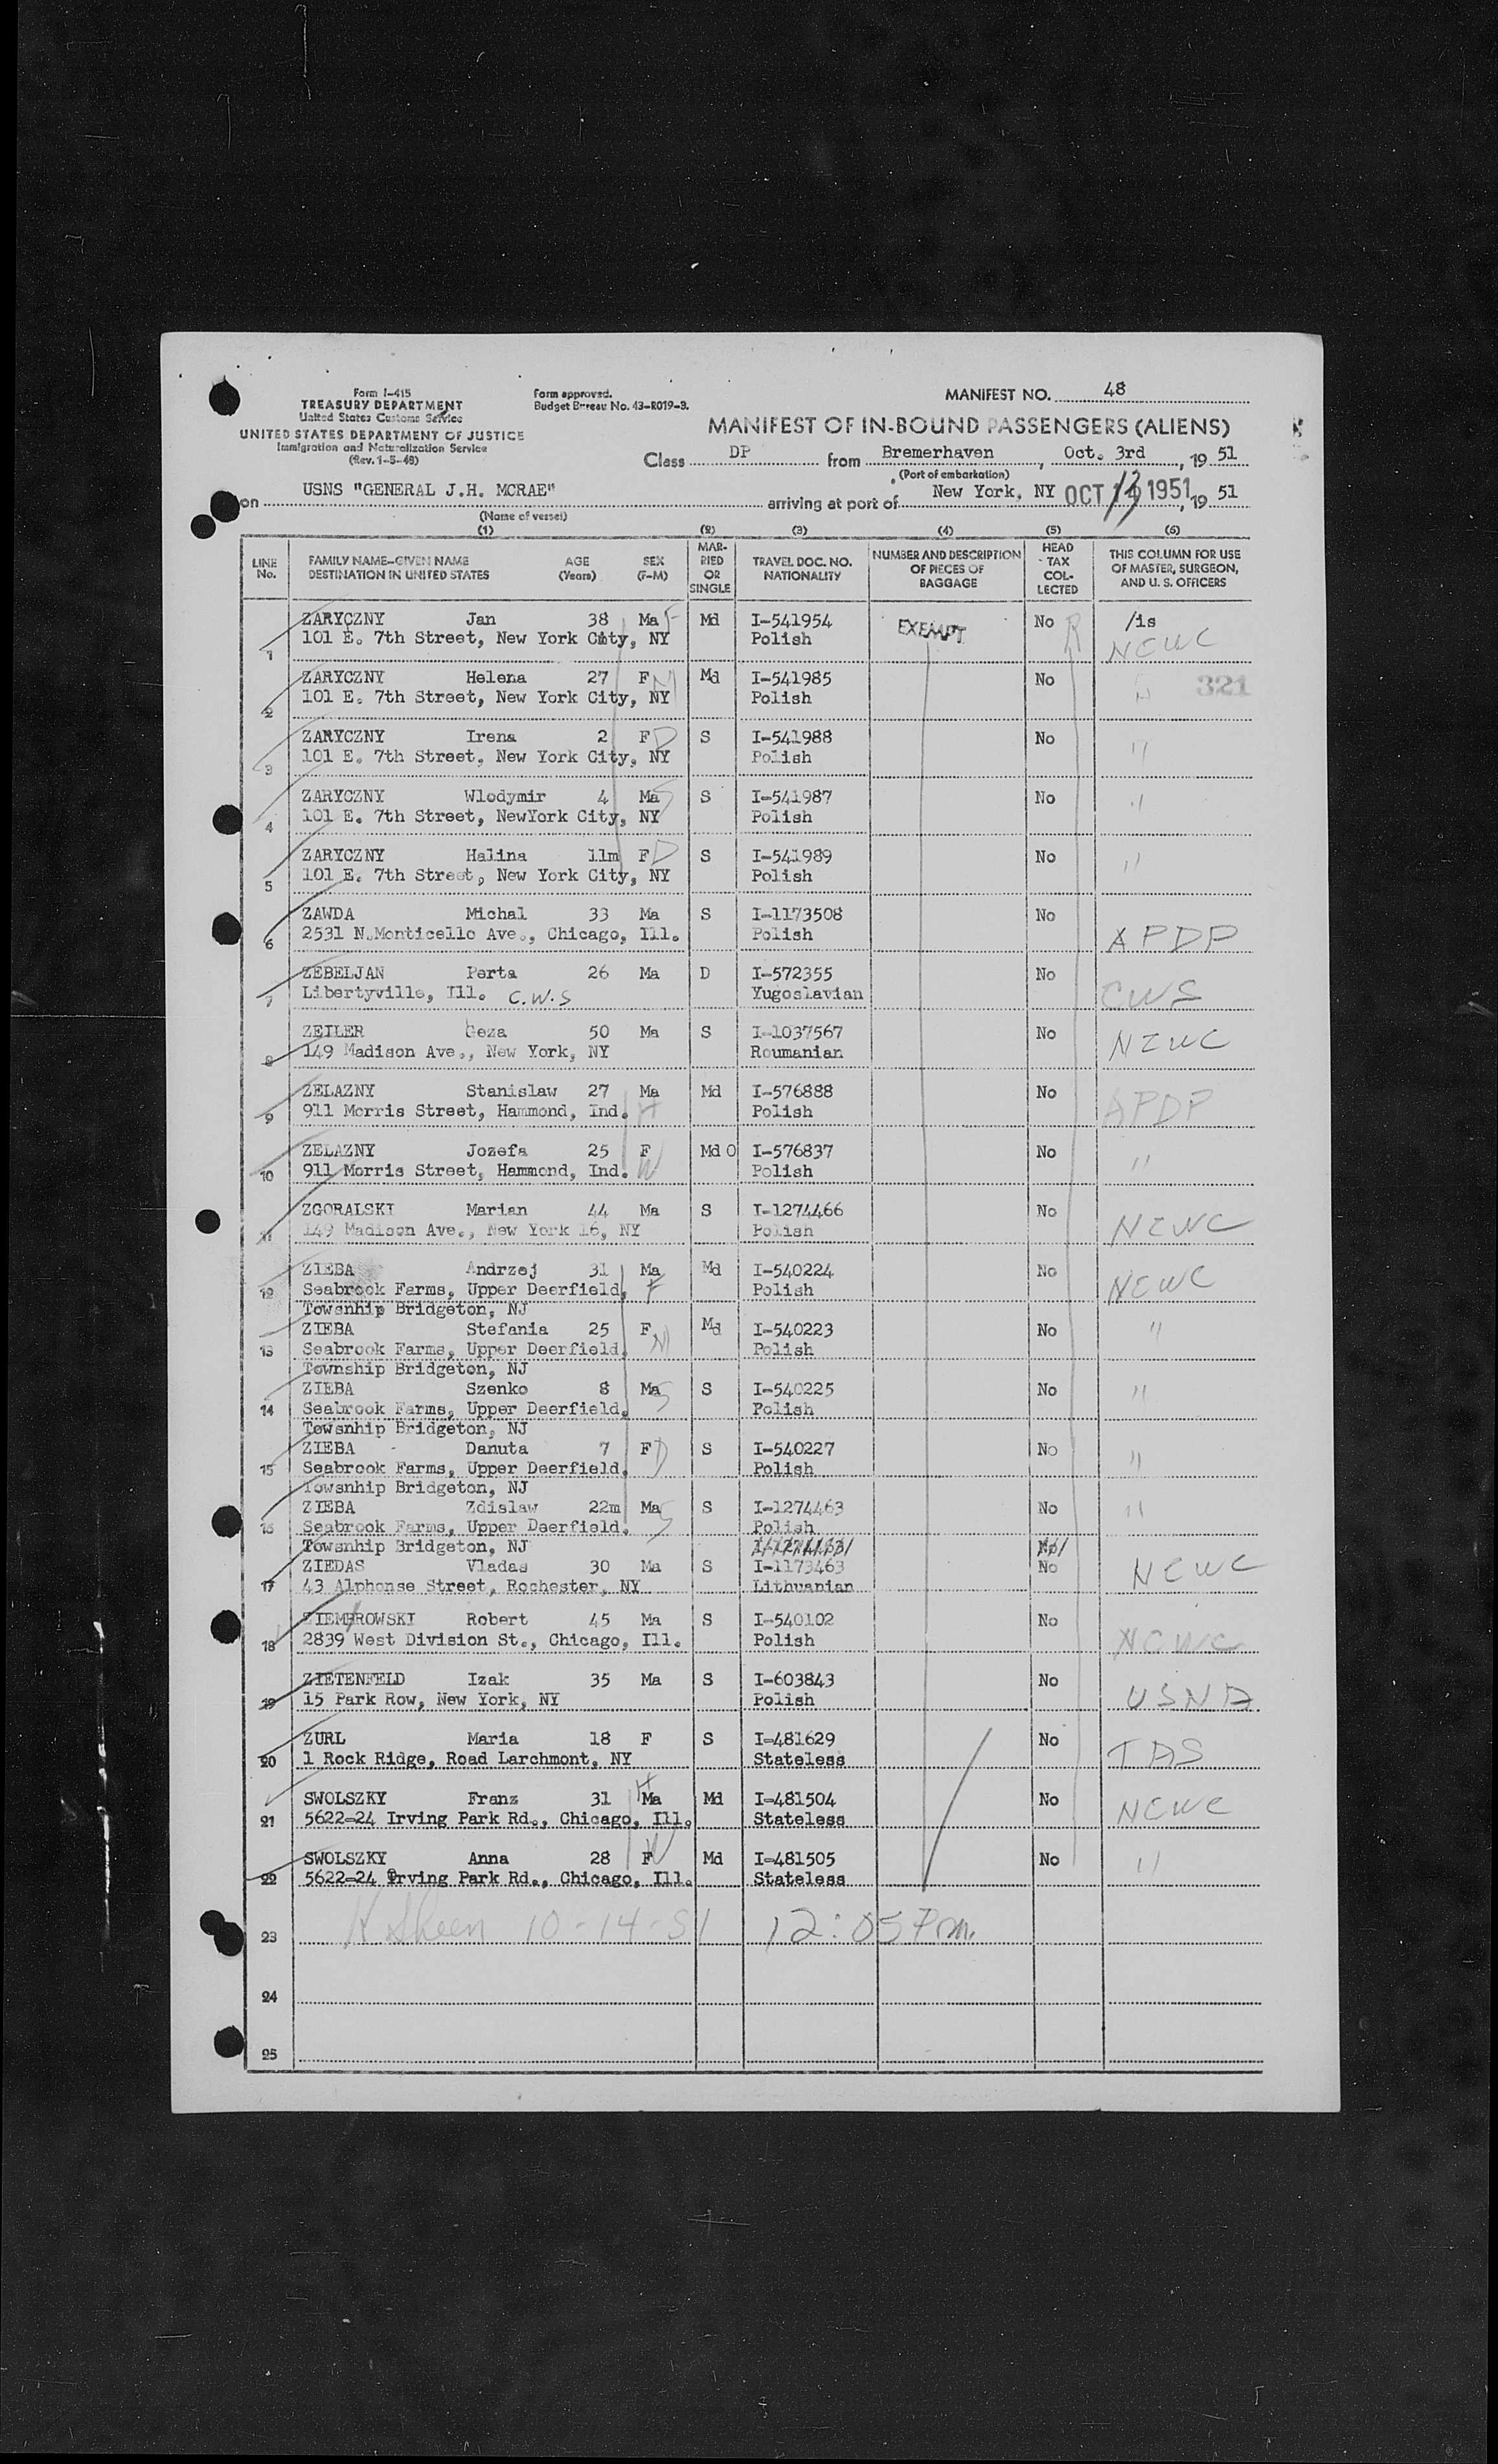 Form I-415
TREASURY DEPARTMENT
United States Customs Service
UNITED STATES DEPARTMENT OF JUSTICE
Immigration and Naturalization Service
(Rev. 1-5-48)
Form approved.
Budget Bureau No. 43-R019-3.
MANIFEST NO. 48
MANIFEST OF IN-BOUND PASSENGERS (ALIENS)
Class DP from Bremerhaven, Oct. 3rd, 19 51
(Port of embarkation)
on USNS "GENERAL J.H. MCRAE" arriving at port of New York, NY OCT 13 1951, 19 51
(Name of vessel)
(1) (2) (3) (4) (5) (6)
LINE No. FAMILY NAME-GIVEN NAME DESTINATION IN UNITED STATES AGE (Years) SEX (F-M) MARRIED OR SINGLE TRAVEL DOC. NO. NATIONALITY NUMBER AND DESCRIPTION OF PIECES OF BAGGAGE HEAD TAX COLLECTED THIS COLUMN FOR USE OF MASTER, SURGEON, AND U. S. OFFICERS
ZARYCZNY Jan 38 Ma F Md I-541954 EXEMPT No /is
1 101 E. 7th Street, New York City, NY Polish NCWC
ZARYCZNY Helena 27 F Md I-541985 No 321
2 101 E. 7th Street, New York City, NY Polish
ZARYCZNY Irena 2 F D S I-541988 No
3 101 E. 7th Street, New York City, NY Polish "
ZARYCZNY Wlodymir 4 Ma S S I-541987 No
4 101 E. 7th Street, NewYork City, NY Polish "
ZARYCZNY Halina 11m F D S I-541989 No
5 101 E. 7th Street, New York City, NY Polish "
ZAWDA Michal 33 Ma S I-1173508 No
6 2531 N.Monticello Ave., Chicago, Ill. Polish APDP
ZEBELJAN Perta 26 Ma D I-572355 No
7 Libertyville, Ill. C.W.S Yugoslavian CWS
ZEILER Geza 50 Ma S I-1037567 No
8 149 Madison Ave., New York, NY Roumanian NCWC
ZELAZNY Stanislaw 27 Ma Md I-576888 No
9 911 Morris Street, Hammond, Ind. H Polish APDP
ZELAZNY Jozefa 25 F Md O I-576837 No
10 911 Morris Street, Hammond, Ind. W Polish "
ZGORALSKI Marian 44 Ma S I-1274466 No
11 149 Madison Ave., New York 16, NY Polish NCWC
ZIEBA Andrzej 31 Ma Md I-540224 No
12 Seabrook Farms, Upper Deerfield, F Polish NCWC
Towsnhip Bridgeton, NJ
ZIEBA Stefania 25 F Md I-540223 No "
13 Seabrook Farms, Upper Deerfield, M Polish
Township Bridgeton, NJ
ZIEBA Szenko 8 Ma S S I-540225 No "
14 Seabrook Farms, Upper Deerfield, Polish
Towsnhip Bridgeton, NJ
ZIEBA Danuta 7 F D S I-540227 No
15 Seabrook Farms, Upper Deerfield, Polish "
Towsnhip Bridgeton, NJ
ZIEBA Zdislaw 22m Ma S S I-1274463 No "
16 Seabrook Farms, Upper Deerfield, Polish
Towsnhip Bridgeton, NJ
ZIEDAS Vladas 30 Ma S I-1173463 No
17 43 Alphonse Street, Rochester, NY Lithuanian NCWC
ZIEMBROWSKI Robert 45 Ma S I-540102 No
18 2839 West Division St., Chicago, Ill. Polish NCWC
ZIETENFELD Izak 35 Ma S I-603843 No
19 15 Park Row, New York, NY Polish USNA
ZURL Maria 18 F S I-481629 No
20 1 Rock Ridge, Road Larchmont, NY Stateless IAS
SWOLSZKY Franz 31 H Ma Md I-481504 No
21 5622-24 Irving Park Rd., Chicago, Ill. Stateless NCWC
SWOLSZKY Anna 28 F W Md I-481505 No "
22 5622-24 Irving Park Rd., Chicago, Ill. Stateless
23 10-14-51 12:05 Pm.
24
25